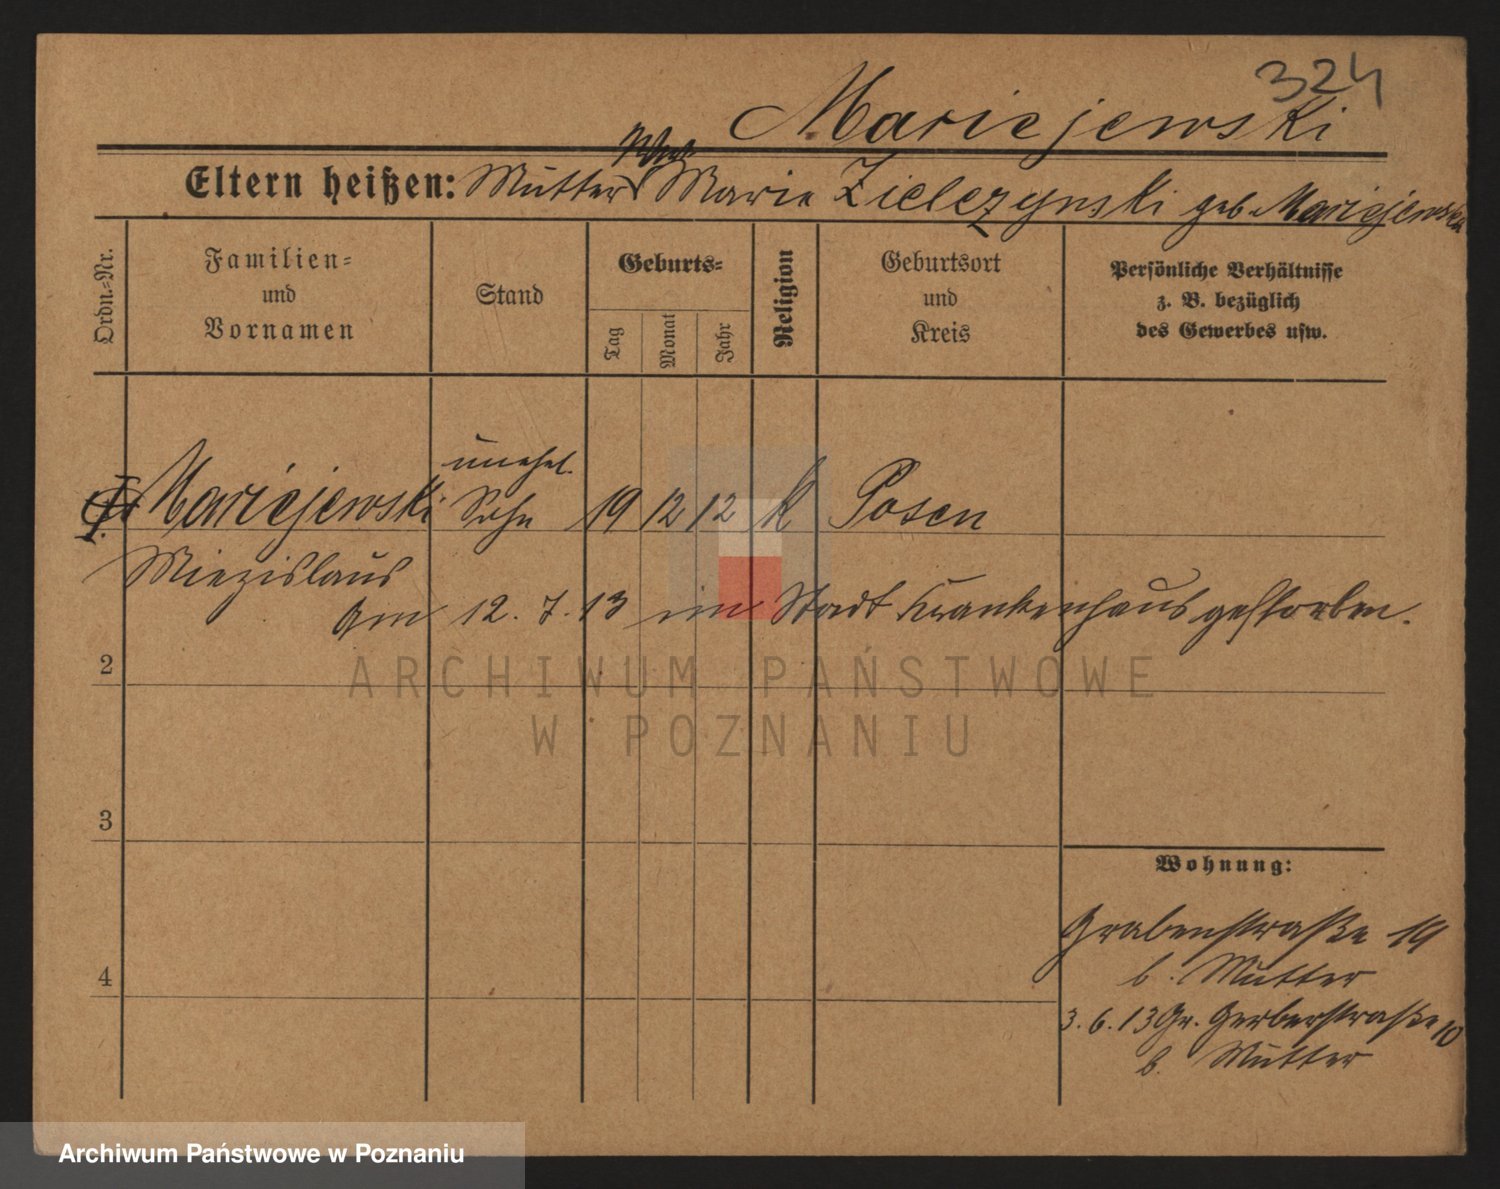 324
Maricejewski
Eltern heißen: Mutter Ww. Marie Zielezynski geb. Maricejewska
Ordn.=Nr.
Familien=
und
Vornamen
Stand
Geburts=
Tag
Monat
Jahr
Religion
Geburtsort
und
Kreis
Persönliche Verhältnisse
z. B. bezüglich
des Gewerbes usw.
unehel.
Maricejewski Sohn 19 12 12 K Posen
Miezislaus
am 12. 7. 13 im Stadt Krankenhaus gestorben.
2
3
4
Wohnung:
Grabenstraße 19
b. Mutter
3. 6. 13 Gr. Gerberstraße 10
b. Mutter
ARCHIWUM PAŃSTWOWE
W POZNANIU
Archiwum Państwowe w Poznaniu